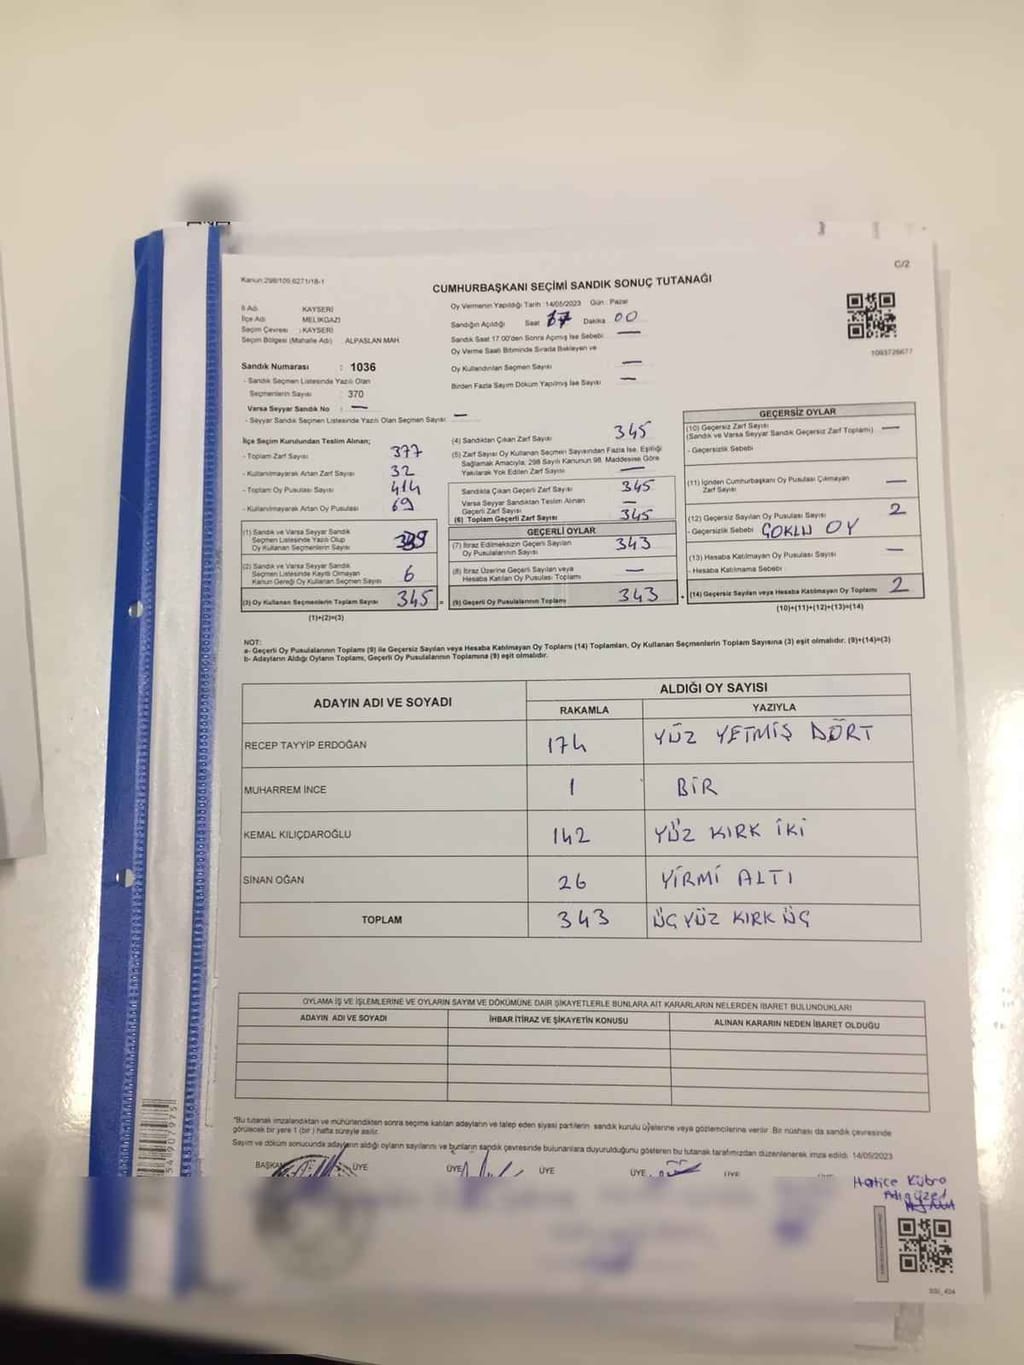 Kanun:298/109,6271/18-1
C/2
CUMHURBAŞKANI SEÇİMİ SANDIK SONUÇ TUTANAĞI
İl Adı : KAYSERİ
İlçe Adı : MELİKGAZİ
Seçim Çevresi : KAYSERİ
Seçim Bölgesi (Mahalle Adı) ALPASLAN MAH.
Oy Vermenin Yapıldığı Tarih :14/05/2023 Gün : Pazar
Sandığın Açıldığı Saat 17 Dakika 00
Sandık Saat 17:00'den Sonra Açılmış İse Sebebi —
Oy Verme Saati Bitiminde Sırada Bekleyen ve
Oy Kullandırılan Seçmen Sayısı —
Birden Fazla Sayım Döküm Yapılmış İse Sayısı —
1093726677
Sandık Numarası : 1036
- Sandık Seçmen Listesinde Yazılı Olan
Seçmenlerin Sayısı : 370
Varsa Seyyar Sandık No : —
- Seyyar Sandık Seçmen Listesinde Yazılı Olan Seçmen Sayısı —
İlçe Seçim Kurulundan Teslim Alınan;
- Toplam Zarf Sayısı 377
- Kullanılmayarak Artan Zarf Sayısı 32
- Toplam Oy Pusulası Sayısı 414
- Kullanılmayarak Artan Oy Pusulası 69
(1) Sandık ve Varsa Seyyar Sandık
Seçmen Listesinde Yazılı Olup
Oy Kullanan Seçmenlerin Sayısı
(2) Sandık ve Varsa Seyyar Sandık
Seçmen Listesinde Kayıtlı Olmayan
Kanun Gereği Oy Kullanan Seçmen Sayısı 6
(3) Oy Kullanan Seçmenlerin Toplam Sayısı 345 =
(1)+(2)=(3)
(4) Sandıktan Çıkan Zarf Sayısı 345
(5) Zarf Sayısı Oy Kullanan Seçmen Sayısından Fazla İse, Eşitliği
Sağlamak Amacıyla; 298 Sayılı Kanunun 98. Maddesine Göre
Yakılarak Yok Edilen Zarf Sayısı —
Sandıkta Çıkan Geçerli Zarf Sayısı 345
Varsa Seyyar Sandıktan Teslim Alınan
Geçerli Zarf Sayısı —
(6) Toplam Geçerli Zarf Sayısı 345
GEÇERLİ OYLAR
(7) İtiraz Edilmeksizin Geçerli Sayılan
Oy Pusulalarının Sayısı 343
(8) İtiraz Üzerine Geçerli Sayılan veya
Hesaba Katılan Oy Pusulası Toplamı —
(9) Geçerli Oy Pusulalarının Toplamı 343 +
GEÇERSİZ OYLAR
(10) Geçersiz Zarf Sayısı
(Sandık ve Varsa Seyyar Sandık Geçersiz Zarf Toplamı) —
- Geçersizlik Sebebi
(11) İçinden Cumhurbaşkanı Oy Pusulası Çıkmayan
Zarf Sayısı —
(12) Geçersiz Sayılan Oy Pusulası Sayısı 2
- Geçersizlik Sebebi ÇOKLU OY
(13) Hesaba Katılmayan Oy Pusulası Sayısı —
- Hesaba Katılmama Sebebi
(14) Geçersiz Sayılan veya Hesaba Katılmayan Oy Toplamı 2
(10)+(11)+(12)+(13)=(14)
NOT:
a- Geçerli Oy Pusulalarının Toplamı (9) ile Geçersiz Sayılan veya Hesaba Katılmayan Oy Toplamı (14) Toplamları, Oy Kullanan Seçmenlerin Toplam Sayısına (3) eşit olmalıdır. (9)+(14)=(3)
b- Adayların Aldığı Oyların Toplamı, Geçerli Oy Pusulalarının Toplamına (9) eşit olmalıdır.
ADAYIN ADI VE SOYADI
ALDIĞI OY SAYISI
RAKAMLA YAZIYLA
RECEP TAYYİP ERDOĞAN 174 YÜZ YETMİŞ DÖRT
MUHARREM İNCE 1 BİR
KEMAL KILIÇDAROĞLU 142 YÜZ KIRK İKİ
SİNAN OĞAN 26 YİRMİ ALTI
TOPLAM 343 ÜÇ YÜZ KIRK ÜÇ
OYLAMA İŞ VE İŞLEMLERİNE VE OYLARIN SAYIM VE DÖKÜMÜNE DAİR ŞİKAYETLERLE BUNLARA AİT KARARLARIN NELERDEN İBARET BULUNDUKLARI
ADAYIN ADI VE SOYADI İHBAR İTİRAZ VE ŞİKAYETİN KONUSU ALINAN KARARIN NEDEN İBARET OLDUĞU
*Bu tutanak imzalandıktan ve mühürlendikten sonra seçime katılan adayların ve talep eden siyasi partilerin sandık kurulu üyelerine veya gözlemcilerine verilir. Bir nüshası da sandık çevresinde
görülecek bir yere 1 (bir) hafta süreyle asılır.
Sayım ve döküm sonucunda adayların aldığı oyların sayılarını ve bunların sandık çevresinde bulunanlara duyurulduğunu gösteren bu tutanak tarafımızdan düzenlenerek imza edildi. 14/05/2023
BAŞKAN ÜYE ÜYE ÜYE ÜYE ÜYE ÜYE
Hatice Kübra
Adıgüzel